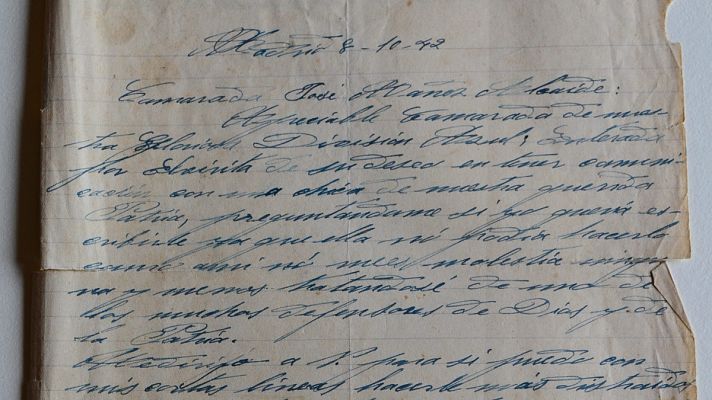 Madrid 8-10-42
Camarada José Mañez Alcaide:
Apreciable Camarada de nues-
tra Gloriosa División Azul; Enterada
por de su deseo en tener comuni-
cación con una chica de nuestra querida
Patria, preguntandome si yo quería es-
cribirle ya que ella no podía hacerlo
como a mi no me es molestia ningu-
na y menos tratandosé de uno de
los muchos defensores de Dios y de
la Patria.
Me dirijo a V. para si puedo con
mis cortas líneas hacerle más distraidos